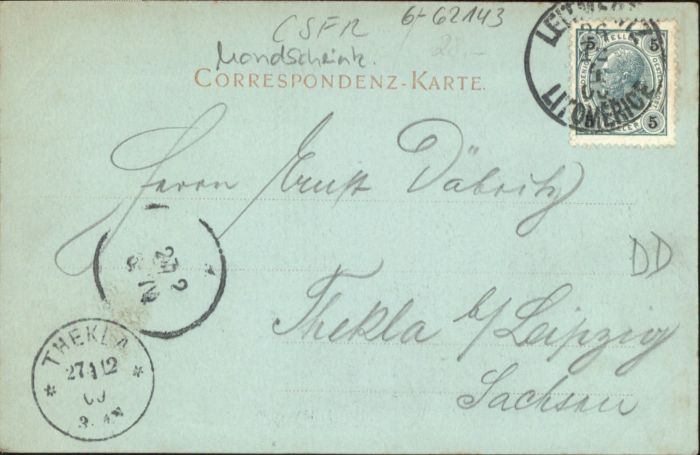 CSFR
6-62143
Mondscheink.
28.-
CORRESPONDENZ-KARTE.
LEITMERITZ
LITOMĚŘICE
5 HELLER 5
5 5
Herrn Ernst Däbritz
DD
Thekla b/Leipzig
Sachsen
THEKLA
27 12
00